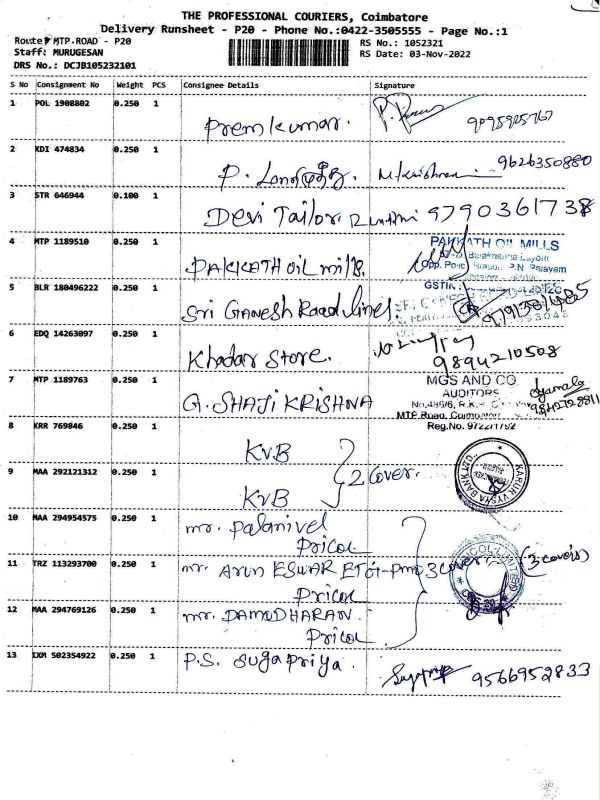 THE PROFESSIONAL COURIERS, Coimbatore
Delivery Runsheet - P20 - Phone No.:0422-3505555 - Page No.:1
Route MTP ROAD - P20
RS No.: 1052321
Staff: MURUGESAN
RS Date: 03-Nov-2022
DRS No.: DCJB105232101
S No Consignment No Weight PCS Consignee Details Signature
1 POL 1908802 0.250 1 Premkumar.
2 KDI 474834 0.250 1 P. 9626350880
3 STR 646944 0.100 1 Devi Tailor 9790361738
4 MTP 1189510 0.250 1 PAKKATH OIL mills.
PAKKATH OIL MILLS
5 BLR 180496222 0.250 1 Sri Ganesh Road lines.
GSTIN
6 EDQ 14263097 0.250 1 Khadar Store. 9894210508
7 MTP 1189763 0.250 1 G. SHAJI KRISHNA
MGS AND CO
AUDITORS
MTP Road, Coimbatore
Reg.No. 9722/1792
8 KRR 769846 0.250 1 KVB
2 Cover.
9 MAA 292121312 0.250 1 KVB
KARUR VYSYA BANK LTD.,
10 MAA 294954575 0.250 1 mr. Palanivel
Pricol
11 TRZ 113293700 0.250 1 mr. Arun ESWAR 3 cover (3 covers)
Pricol
12 MAA 294769126 0.250 1 mr. DAMODHARAN.
Pricol.
13 IXM 502354922 0.250 1 P.S. Sugapriya. 9566952833